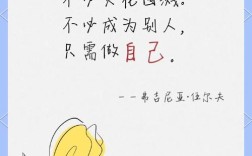 不必火花四溅。
不必成为别人，
只需做自己。
——弗吉尼亚·伍尔夫